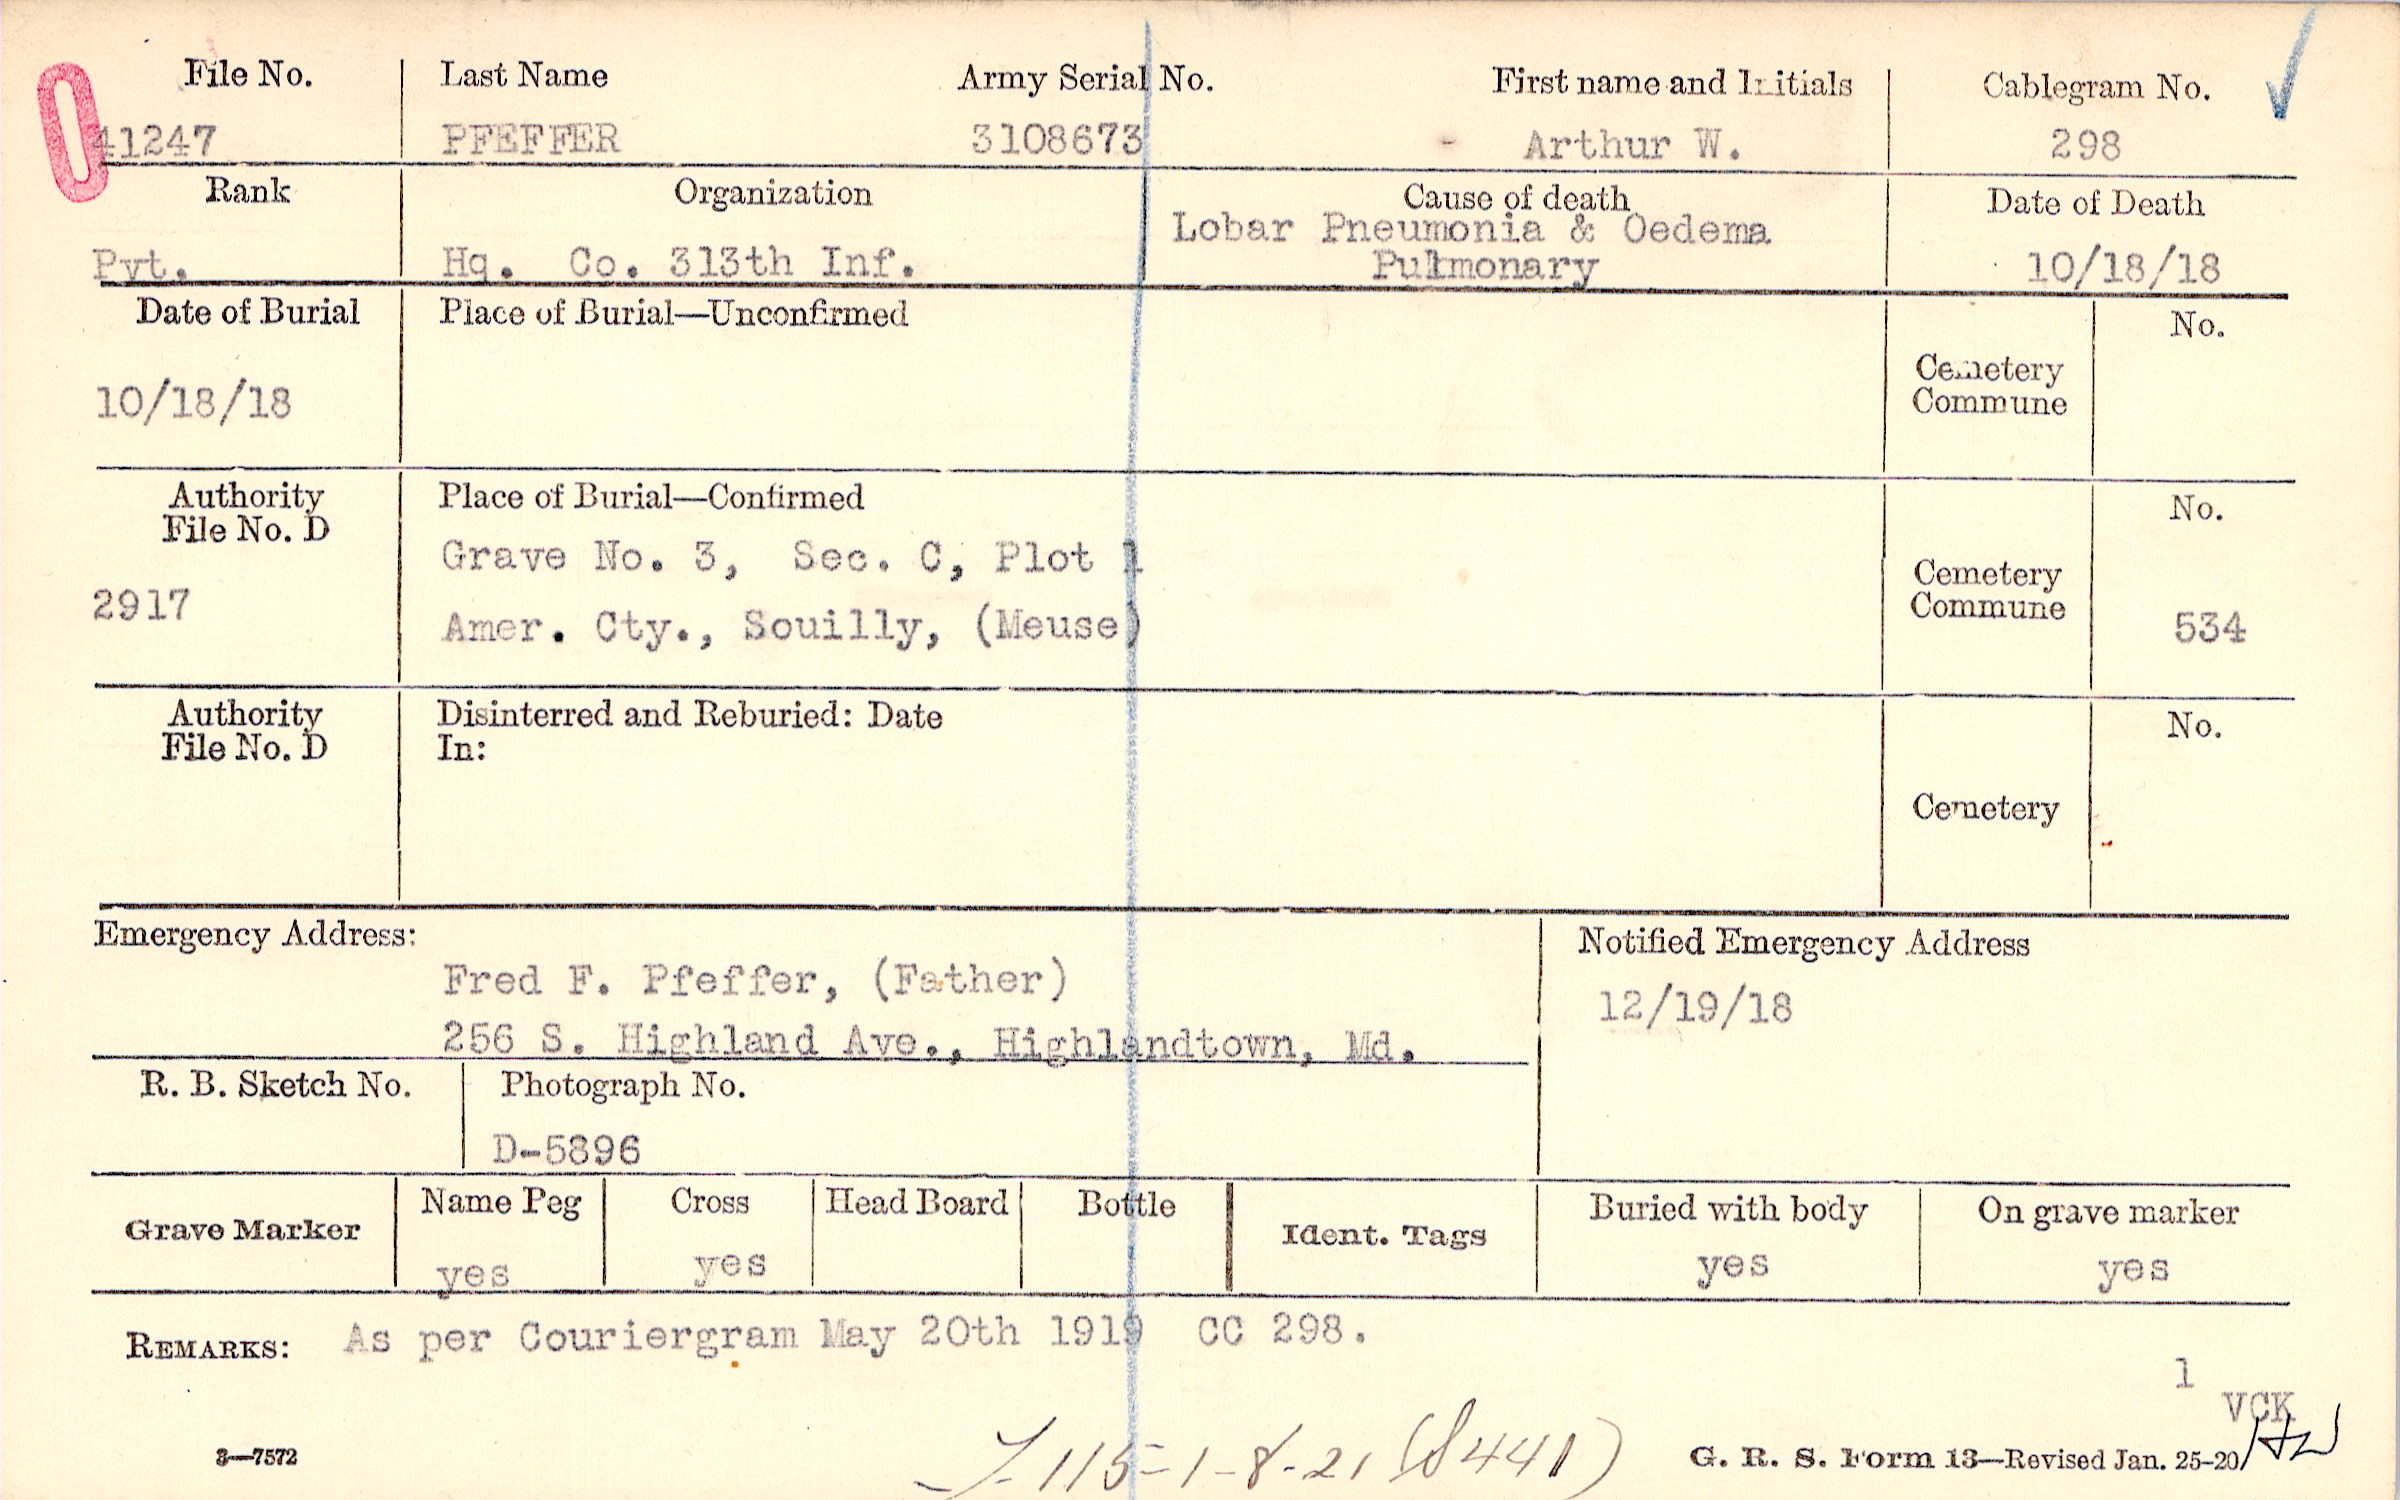 File No. Last Name Army Serial No. First name and Initials Cablegram No.
41247 PFEFFER 3108673 - Arthur W. 298
Rank Organization Cause of death Date of Death
Pvt. Hq. Co. 313th Inf. Lobar Pneumonia & Oedema Pulmonary 10/18/18
Date of Burial Place of Burial—Unconfirmed No.
10/18/18 Cemetery
Commune
Authority Place of Burial—Confirmed No.
File No. D
Grave No. 3, Sec. C, Plot 1 Cemetery
2917 Commune
Amer. Cty., Souilly, (Meuse) 534
Authority Disinterred and Reburied: Date No.
File No. D In:
Cemetery
Emergency Address: Notified Emergency Address
Fred F. Pfeffer, (Father) 12/19/18
256 S. Highland Ave., Highlandtown, Md.
R. B. Sketch No. Photograph No.
D-5896
Grave Marker Name Peg Cross Head Board Bottle Ident. Tags Buried with body On grave marker
yes yes yes yes
REMARKS: As per Couriergram May 20th 1919 CC 298.
1
VCK
3—7572 115-1-8-21 G. R. S. Form 13—Revised Jan. 25-20